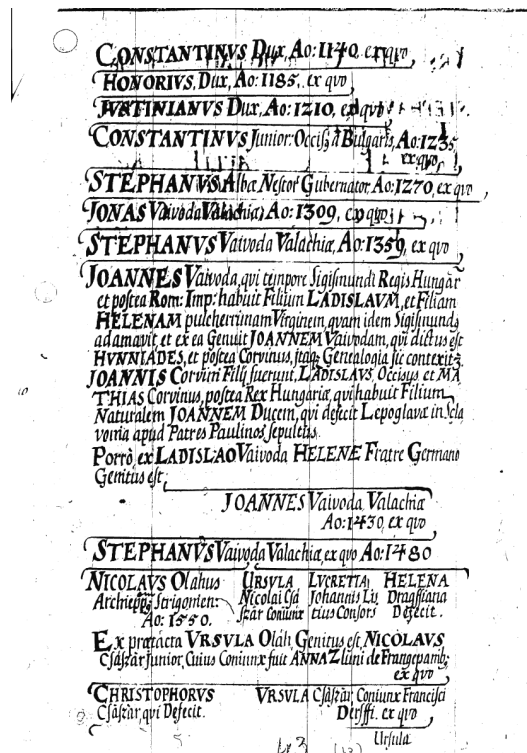 CONSTANTINVS Dux, Ao: 1140, ex qvo
HONORIVS, Dux, Ao: 1185, ex qvo
IVSTINIANVS Dux, Ao: 1210, ex qvo
CONSTANTINVS Junior: Occiss à Bulgaris, Ao: 1235
ex qvo
STEPHANVS Albæ Nestor Gubernator, Ao: 1270, ex qvo
JONAS Vaivoda Valachiæ, Ao: 1309, ex qvo
STEPHANVS Vaivoda Valachiæ, Ao: 1359, ex qvo
JOANNES Vaivoda, qui tempore Sigismundi Regis Hungar
et postea Rom: Imp: habuit Filium LADISLAVM, et Filiam
HELENAM pulcherrimam Virginem, quam idem Sigismundg
adamavit, et ex ea Genuit JOANNEM Vaivodam, qvi dictus est
HVNNIADES, et postea Corvinus, itaq; Genealogia sic contexitz
JOANNIS Corvini Filij fuerunt, LADISLAVS, Occisus et MA
THIAS Corvinus, postea Rex Hungariæ, qui habuit Filium
Naturalem JOANNEM Ducem, qvi defecit Lepoglavæ in Scla
vonia apud Patres Paulinos sepultus.
Porrò, ex LADISLAO Vaivoda HELENÆ Fratre Germano
Genitus est,
JOANNES Vaivoda Valachiæ
Ao: 1430, ex qvo
STEPHANVS Vaivoda Valachiæ, ex quo Ao: 1480
NICOLAVS Olahus URSVLA LVCRETIA, HELENA
Strigonien: Nicolai Csá Johannis Lu Dragssiana
Ao: 1550. szár Coniunx tius Consors Defecit.
Ex præfacta VRSVLA Olàh, Genitus est, NICOLAVS
Császár Junior, Cuius Coniunx fuit ANNA Zluni de Frangepamb;
ex quo
CHRISTOPHORVS VRSVLA Csàszár, Coniunx Francisci
Csàszàr, qvi Defecit. Dersffi, ex qvo
Ursula